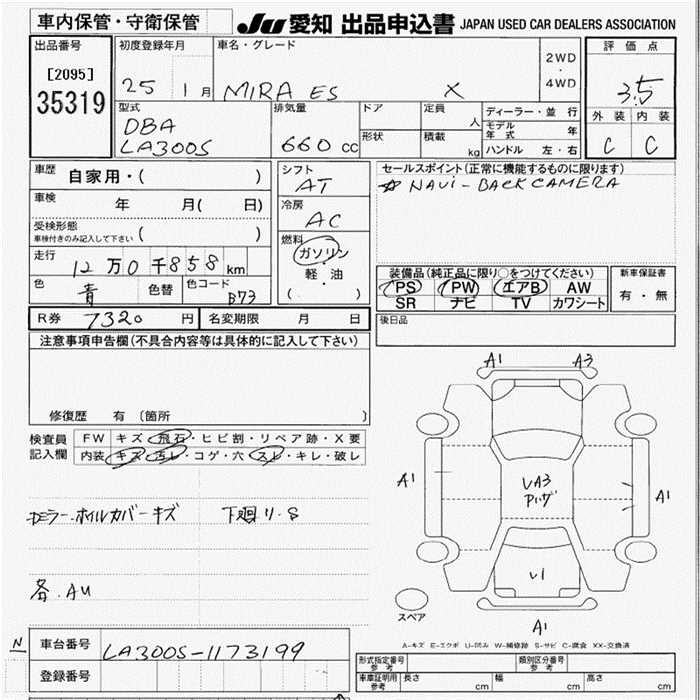 車内保管・守衛保管 JU 愛知 出品申込書 JAPAN USED CAR DEALERS ASSOCIATION
出品番号 初度登録年月 車名・グレード 評価点
[2095] 35319 25 1月 MIRA ES X 2WD・4WD 3.5
型式 排気量 ドア 定員 人 ディーラー・並行 外装 内装
DBA LA300S 660cc 形状 積載 kg モデル年式 年 C C
ハンドル 左・右
車歴 自家用・( ) シフト AT セールスポイント(正常に機能するものに限ります)
☆NAVi-BACK CAMERA
車検 年 月( 日) 冷房 AC
受検形態 ( )
車検付きのみ記入して下さい
燃料 ガソリン・軽・油 ( )
走行 12万0千858km 装備品(純正品に限り○をつけてください) 新車保証書
PS PW エアB AW 有・無
SR ナビ TV カワシート
色 青 色替 色コード B73
R券 7320円 名変期限 月 日 後日品
注意事項申告欄(不具合内容等は具体的に記入して下さい)
修復歴 有 〔箇所 〕
検査員記入欄 FW キズ・飛石・ヒビ割・リペア跡・X要
内装 キズ・汚レ・コゲ・穴・スレ・キレ・破レ
A1 A3
A1 A1
UA3
U1
A1
スペア
ドミラー.ホイルカバーキズ 下廻り.S
各.AU
A-キズ E-エクボ U-凹み W-補修跡 S-サビ C-腐食 XX-交換済
N 車台番号 LA300S-1173199
登録番号
形式指定番号 参考 類別区分番号 参考
車庫証明用 参考 長さ cm 幅 cm 高さ cm